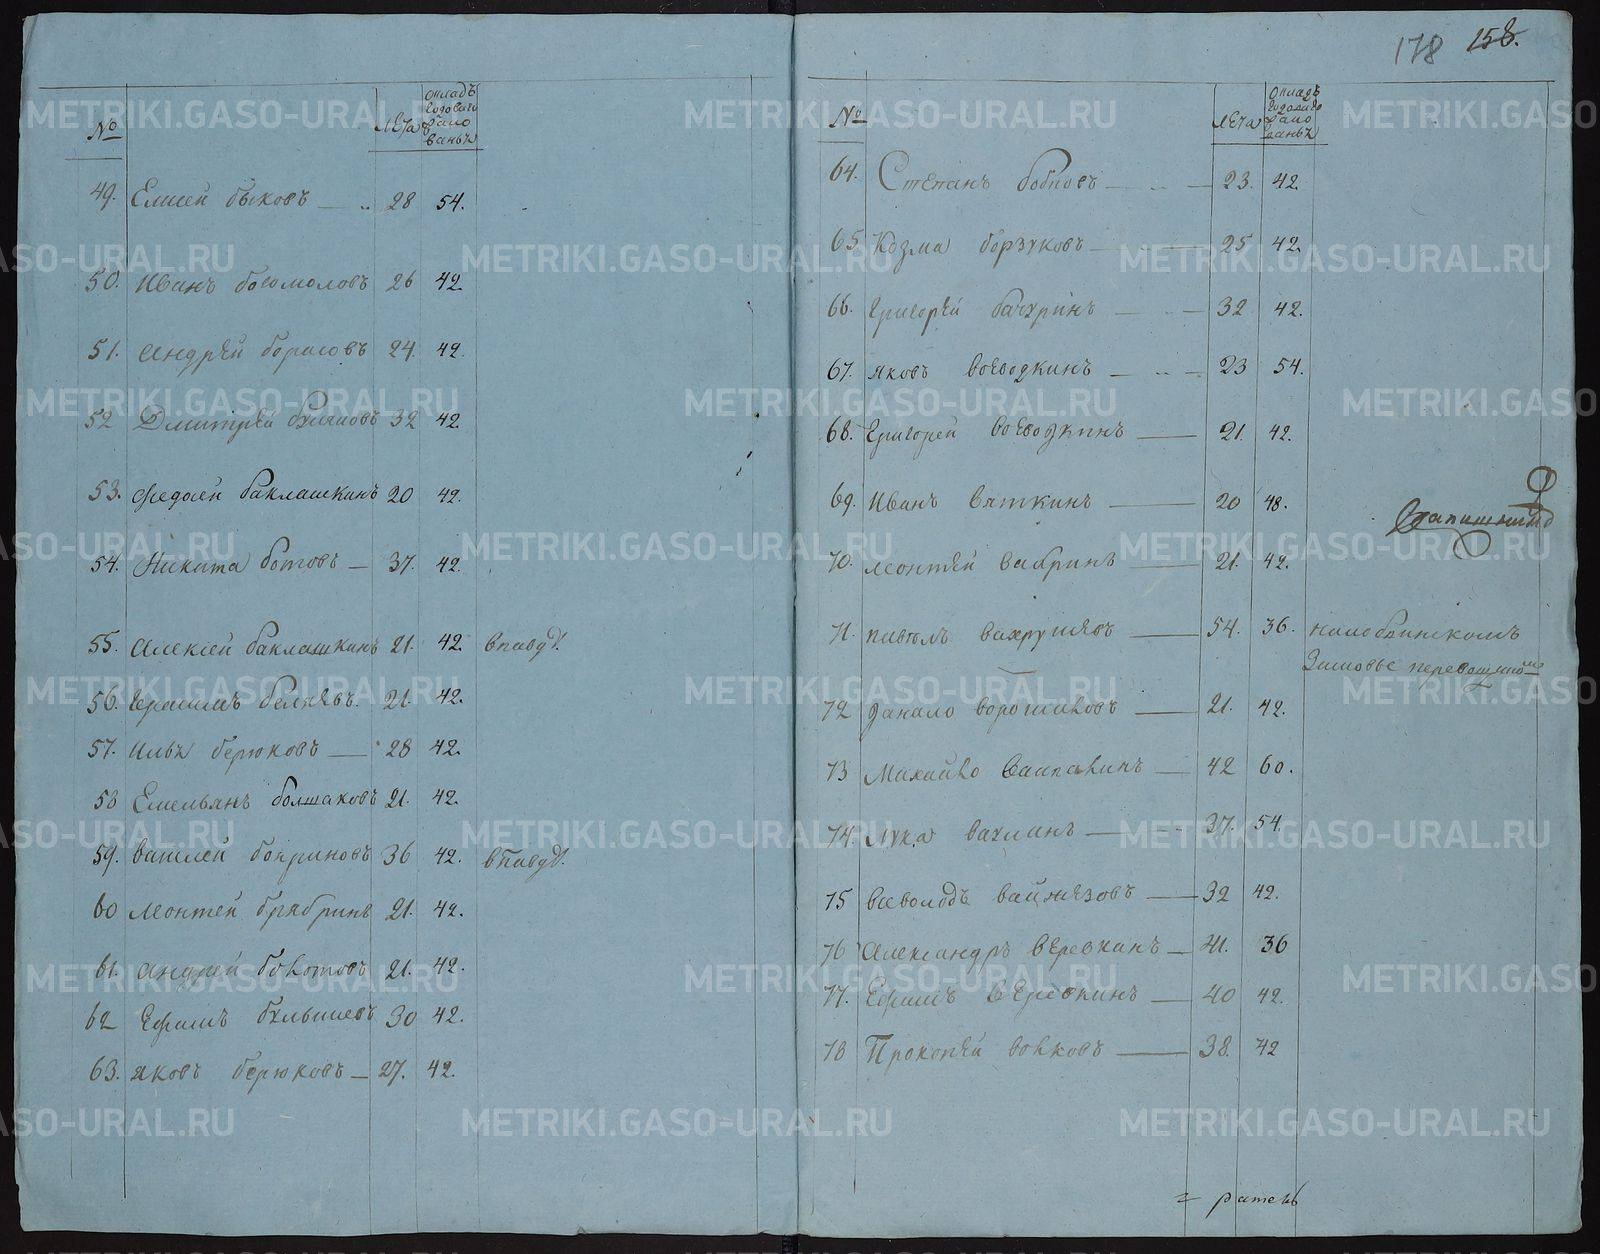 178 158.
№ лета окладъ годоваго жалованья
49. Елисей быковъ 28 54.
50. Иванъ богомоловъ 26 42
51. Андрей борисовъ 24 42.
52 Дмитрей 32 42.
53. Федосей баклашкинъ 20 42.
54. Никита ботовъ 37. 42.
55. Алексей баклашкинъ 21. 42.
56. Герасимъ беляевъ. 21. 42.
57. Илья берюковъ 28 42.
58 Емельянъ болшаковъ 21. 42.
59. василей бояриновъ 36 42.
60 леонтей 21. 42.
61. андрей 21. 42.
62 Ефимъ 30 42.
63. яковъ берюковъ 27. 42.
№ лета окладъ годоваго жалованья
64. Степанъ бобковъ 23. 42.
65 Козма борзуковъ 25 42.
66. Григорей 32 42.
67. яковъ воеводкинъ 23 54.
68. Григорей воеводкинъ 21. 42.
69. Иванъ вяткинъ 20 48.
70. леонтей 21. 42.
71. павелъ вахрушевъ 54. 36.
Зимовье
72 данило ворошиловъ 21. 42.
73 Михайло 42 60.
74. Лука вахманъ 37. 54.
75 всеволодъ 32 42.
76 Александръ веревкинъ 41. 36
77. Ефимъ веревкинъ 40 42.
78 Прокопей волковъ 38. 42
METRIKI.GASO-URAL.RU